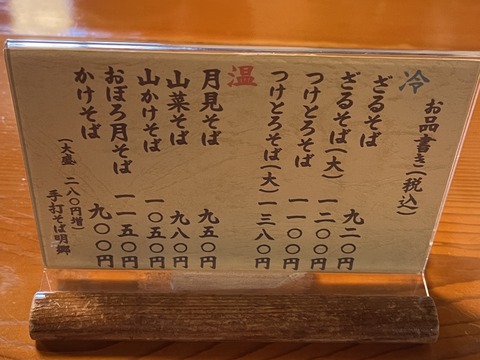 お品書き(税込)
冷
ざるそば 九二〇円
ざるそば(大) 一二〇〇円
つけとろそば 一一〇〇円
つけとろそば(大) 一三八〇円
温
月見そば 九五〇円
山菜そば 九八〇円
山かけそば 一〇五〇円
おぼろ月そば 一一五〇円
かけそば 九〇〇円
(大盛 二八〇円増)
手打そば明郷